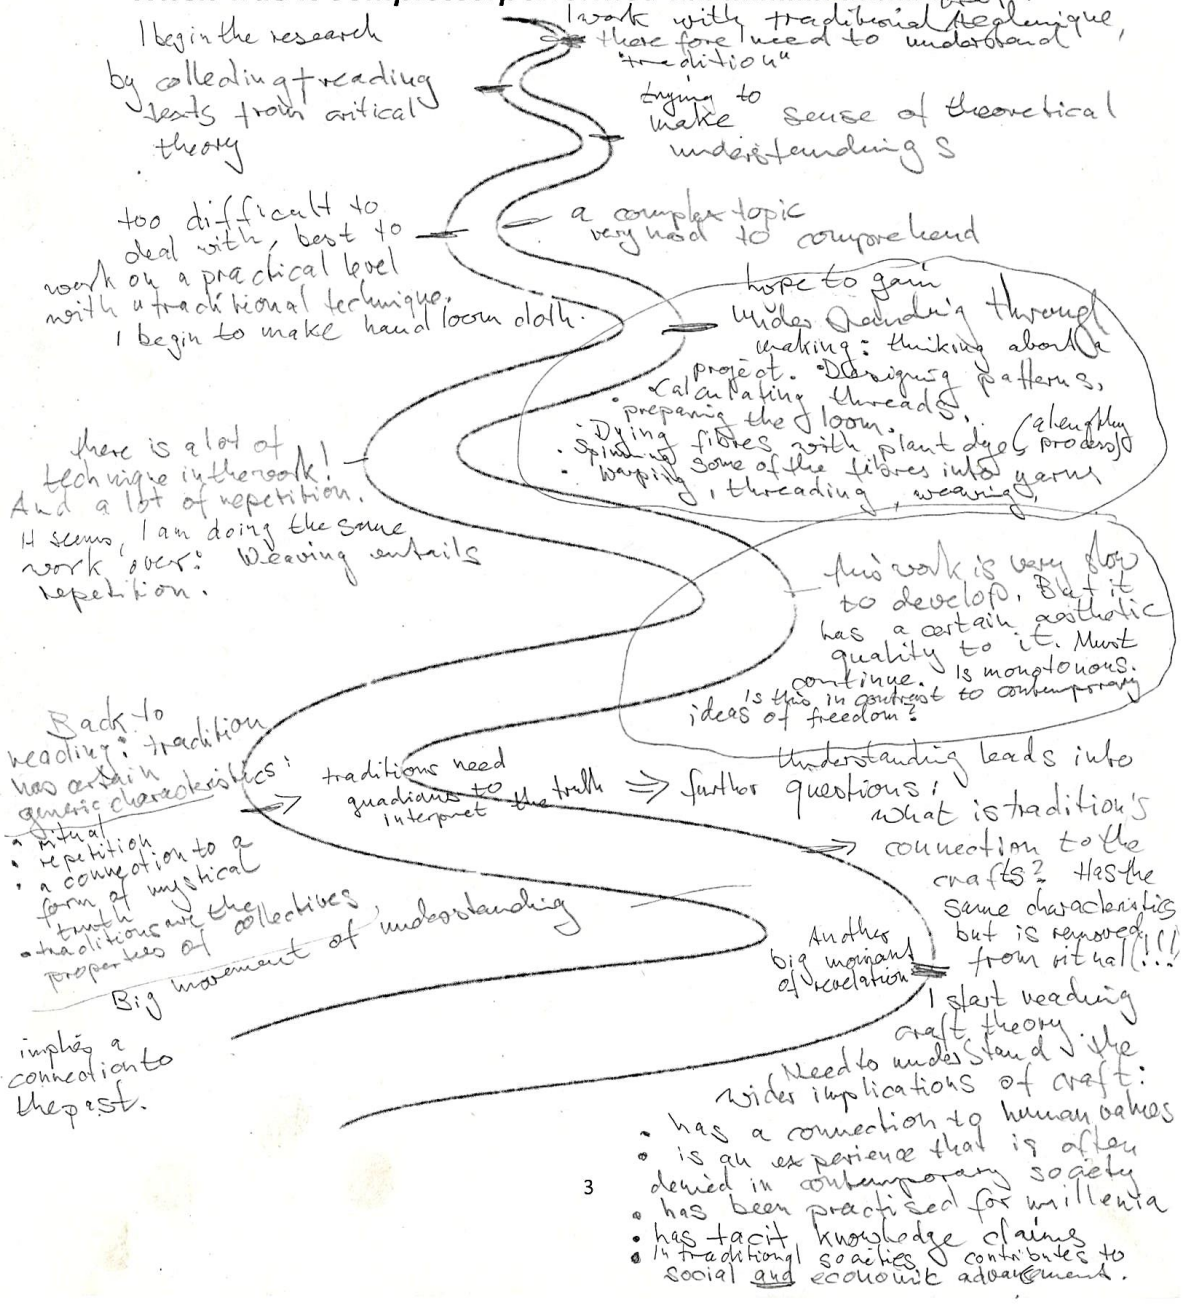 I work with traditional technique,
therefore I need to understand
"tradition"
I begin the research
by collecting + reading
texts from critical
theory
trying to
make sense of theoretical
understandings
too difficult to
deal with, best to
work on a practical level
with a traditional technique.
I begin to make handloom cloth.
a complex topic
very hard to comprehend
hope to gain
understanding through
making: thinking about a
project. • Designing patterns,
• Calculating threads,
preparing the loom.
• Dying fibres with plant dye (a lengthy process)
• Spinning some of the fibres into yarns
• Warping, threading, weaving,
there is a lot of
technique in the work!
And a lot of repetition.
It seems, I am doing the same
work over: Weaving entails
repetition.
this work is very slow
to develop. But it
has a certain aesthetic
quality to it. Must
continue. Is monotonous.
Is this in contrast to contemporary
ideas of freedom?
Back to
reading: tradition
has certain
generic characteristics:
• ritual
• repetition
• a connection to a
form of mystical
truth
• traditions are the
properties of collectives,
Big movement of understanding
implies a
connection to
the past.
traditions need
guadians to
interpret the truth ⇒ further questions:
Understanding leads into
What is tradition's
connection to the
crafts? Has the
same characteristics
but is removed
from ritual!!!
Another
big momant
of revelation
I start reading
craft theory.
Need to understand the
wider implications of craft:
• has a connection to human values
• is an experience that is often
denied in contemporary society
• has been practised for millenia
• has tacit knowledge claims
• In traditional societies contributes to
social and economic advancement.
3